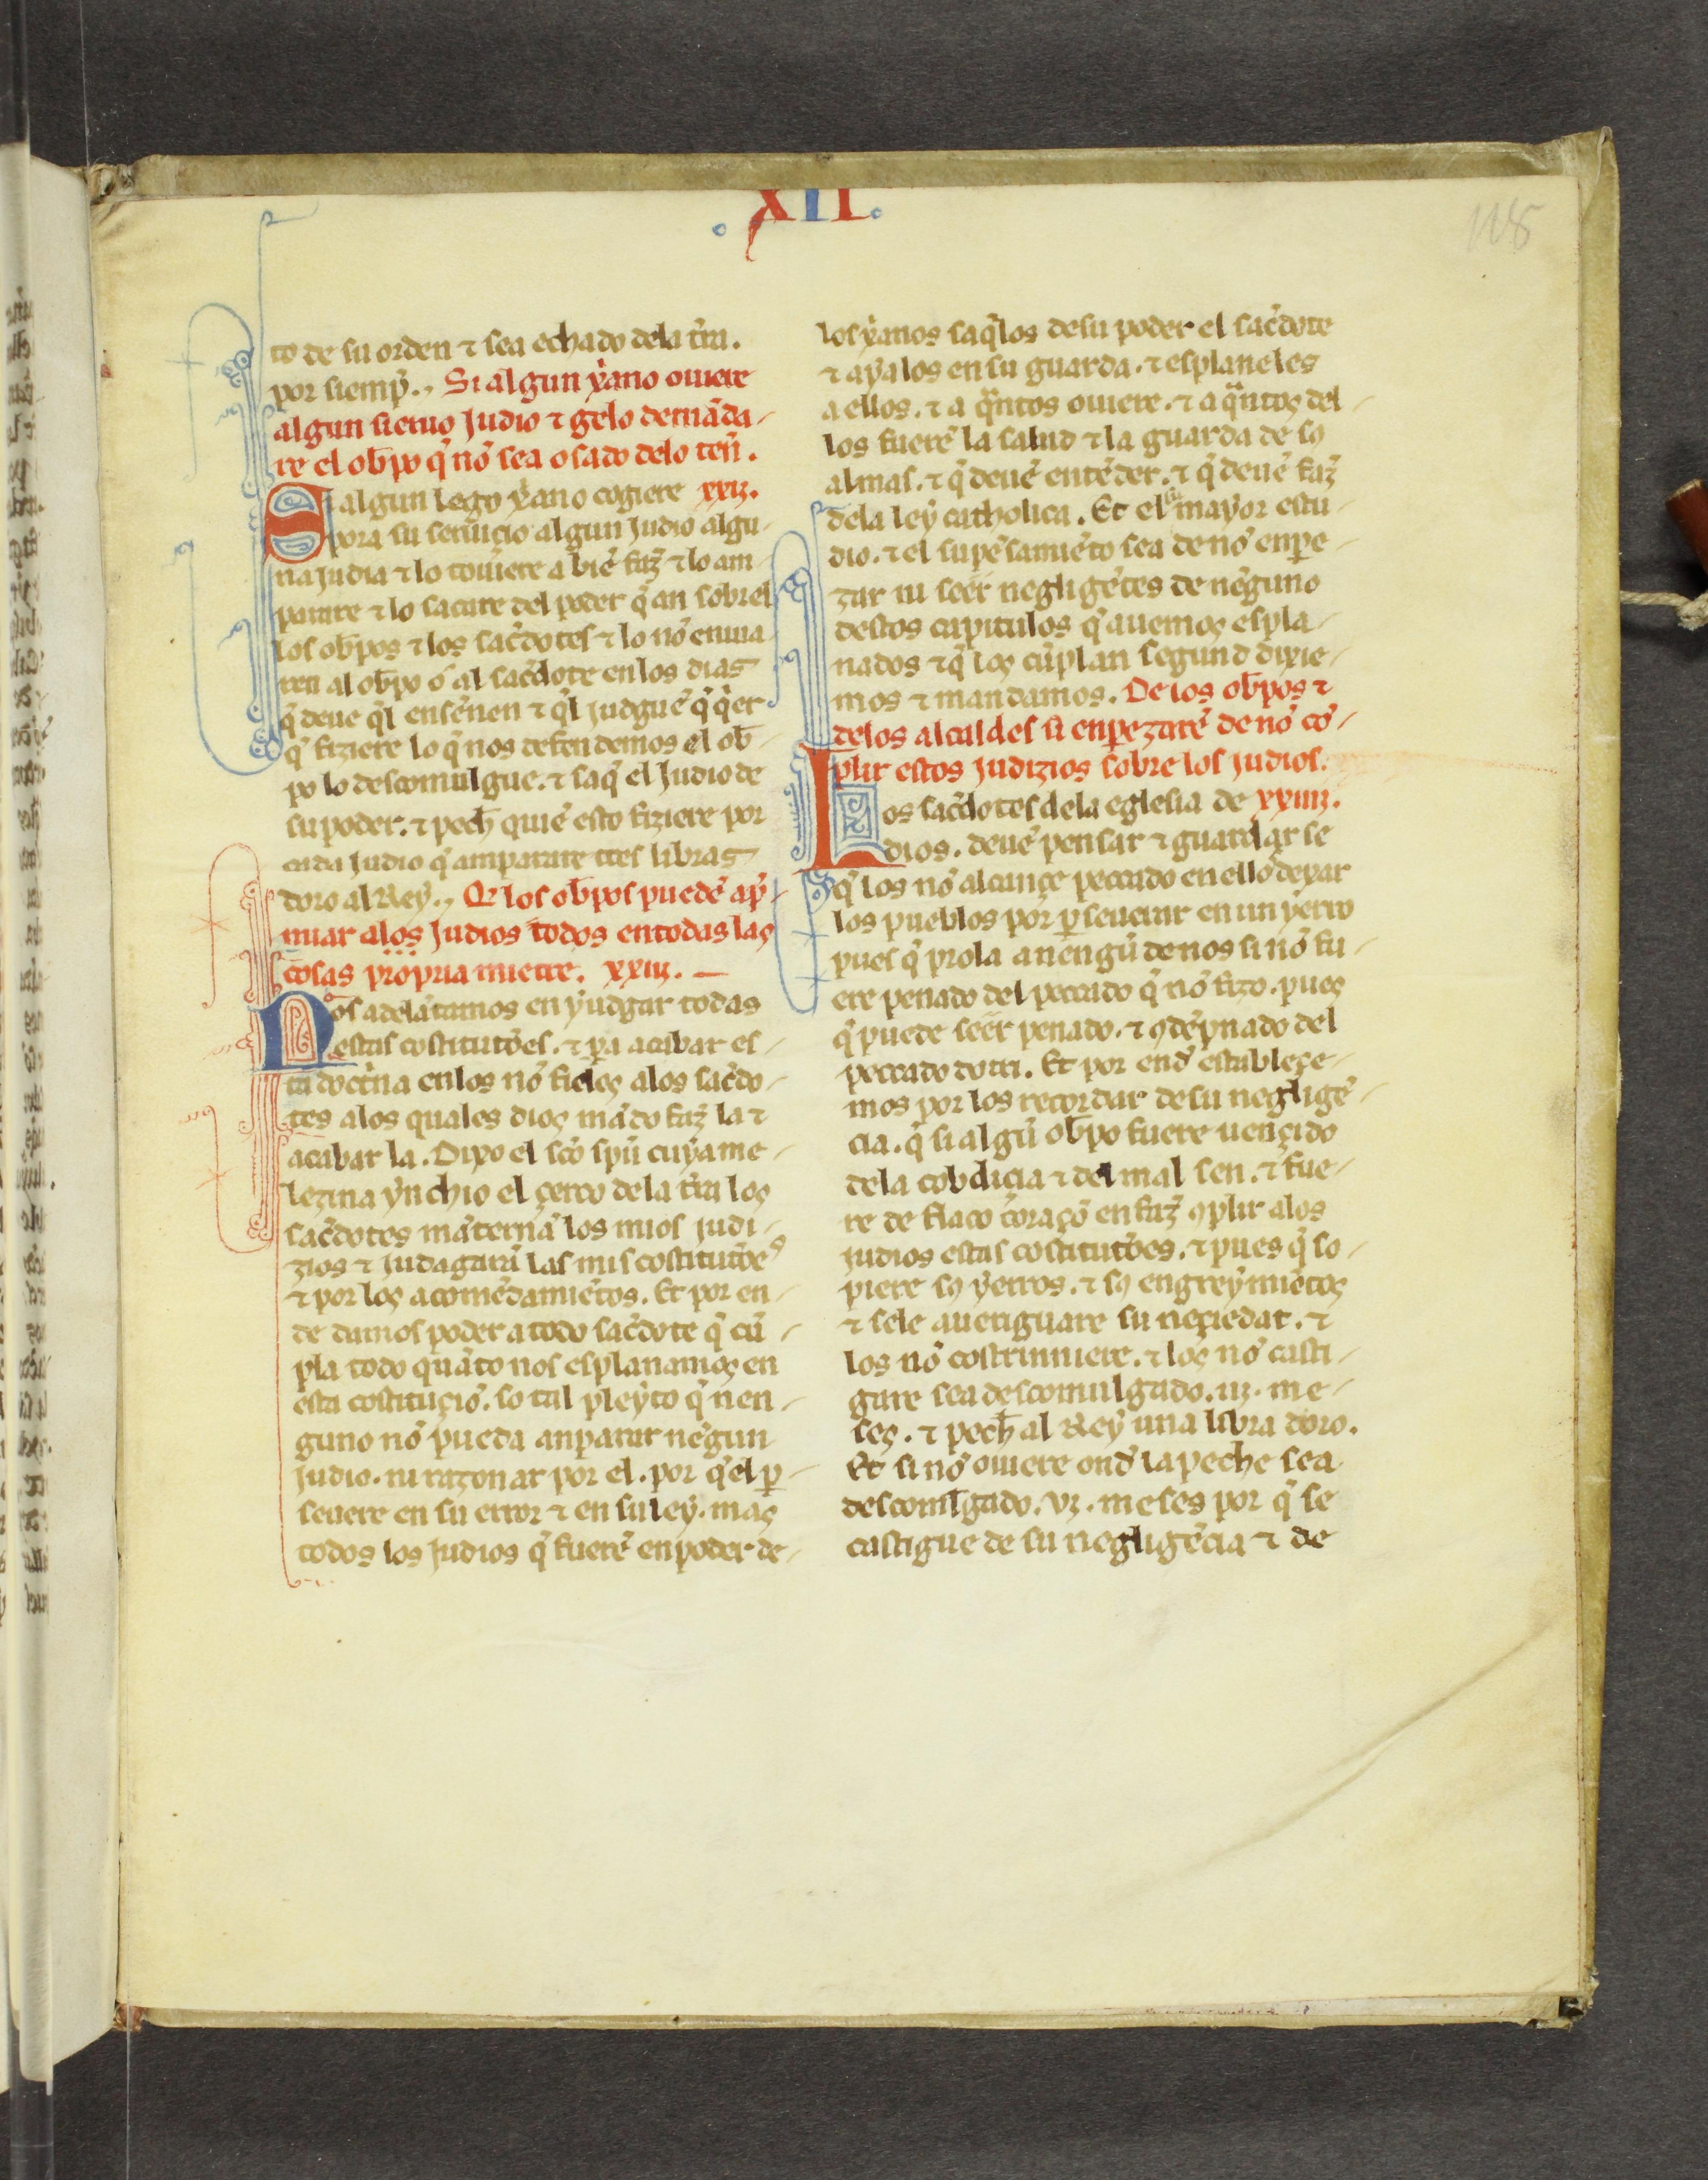 .XII.
118
to de su orden ⁊ sea echado dela tr̃ra.
por siemp̃., Si algun xp̃ano ouiere
algun sieruo Judio ⁊ gelo demãda-
re el ob̃po q̃ nõ sea osado delo ten̄.
Si algun lego xp̃ano cogiere xxij.
pora su seruiçio algun Judio algu-
na judia ⁊ lo touiere a biẽ faz̃ ⁊ lo am-
parare ⁊ lo sacare del poder q̃ an sobrel
los ob̃pos ⁊ los sac̃dotes ⁊ lo nõ enuia
ren al ob̃po o al sac̃dote en los dias
q̃ deue q̃l ensenen ⁊ q̃l judguẽ q̃ q̃er
q̃ fiziere lo q̃ nos defendemos el ob̃-
po lo descomulgue. ⁊ saq̃ el Judio de
su poder. ⁊ pech̃ quiẽ esto fiziere por
cada Judio q̃ amparare tres libras
doro al Rey., Q̃ los ob̃pos puedẽ ap̃-
miar alos Judios todos en todas las
cosas propria mietre. xxiij.
Nos adelãtamos en yudgar todas
estas costitutões. ⁊ pa acabar es-
ta doct̃na en los nõ fieles alos sac̃do-
tes alos quales dios mãdo faz̃ la ⁊
acabar la. Dixo el sc̃o sp̃u cuya me-
lezina ynchio el çerco de la tr̃ra los
sac̃dotes mãternã los mios judi-
zios ⁊ Judagarã las mis costitutões
⁊ por los acomẽdamiẽtos. Et por en-
de damos poder a todo sac̃dote q̃ cũ-
pla todo quãto nos esplanamos en
esta costituçiõ. so tal pleyto q̃ nen-
guno nõ pueda anparar nẽgun
judio. ni razonar por el. por q̃ el p-
seuere en su error ⁊ en su ley. mas
todos los Judios q̃ fuerẽ en poder de-
los xp̃anos saq̃los de su poder el sac̃dote
⁊ aya los en su guarda. ⁊ esplaneles
a ellos. ⁊ a q̃ntos ouiere. ⁊ a q̃ntos del-
los fuerẽ la salud ⁊ la guarda de sꝯ
almas. ⁊ q̃ deuẽ entẽder. ⁊ q̃ deuẽ faz̃
dela ley catholica. Et el su mayor estu-
dio. ⁊ el su pẽsamiẽto sea de nõ enpe-
zar ni seer negligẽtes de nẽguno
destos capitulos q̃ auemos espla-
nados ⁊ q̃ los cũplan segund dixie-
mos ⁊ mandamos. De los ob̃pos ⁊
delos alcaldes si enpezarẽ de nõ cõ-
plir estos Judizios sobre los judios.
Los sac̃dotes dela eglesia de xxiiij.
dios. deuẽ pensar ⁊ guardar se
q̃ los nõ alcançe peccado en ello dexar
los pueblos por pseuerar en un yerro
pues q̃ prola a nengũ de nos si nõ fu-
ere penado del peccado q̃ nõ fizo. pues
q̃ puede seer penado. ⁊ ꝯdẽpnado del
peccado dotri. Et por end̃ estableçe-
mos por los recordar de su negligẽ-
cia. q̃ si algũ ob̃po fuere uençido
dela cobdicia ⁊ del mal sen. ⁊ fue-
re de flaco coraçõ en faz̃ ꝯplir alos
judios estas costitutões. ⁊ pues q̃ so-
piere sꝯ yerros. ⁊ sꝯ engreymiẽtos
⁊ sele aueriguare su neçiedat. ⁊
los nõ costrinniere. ⁊ los nõ casti-
gare sea descomulgado. iij. me-
ses. ⁊ pech̃ al Rey una libra doro.
Et si nõ ouiere ond̃ la peche sea
descomlgado. vj. meses por q̃ se
castigue de su negligẽcia ⁊ de